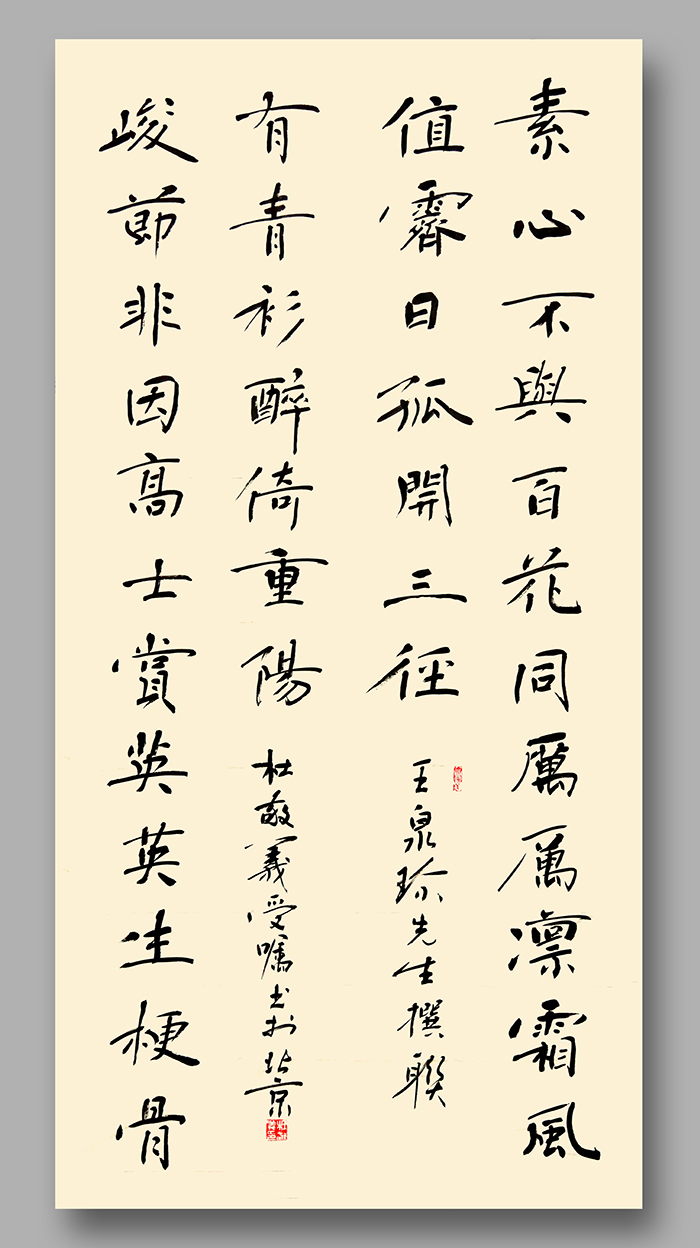 素心不與百花同厲厲凛霜風
值霽日孤開三徑
王泉珍先生撰聯
峻節非因髙士賞英英生梗骨
有青衫醉倚重陽
杜敬義受嘱书於北京